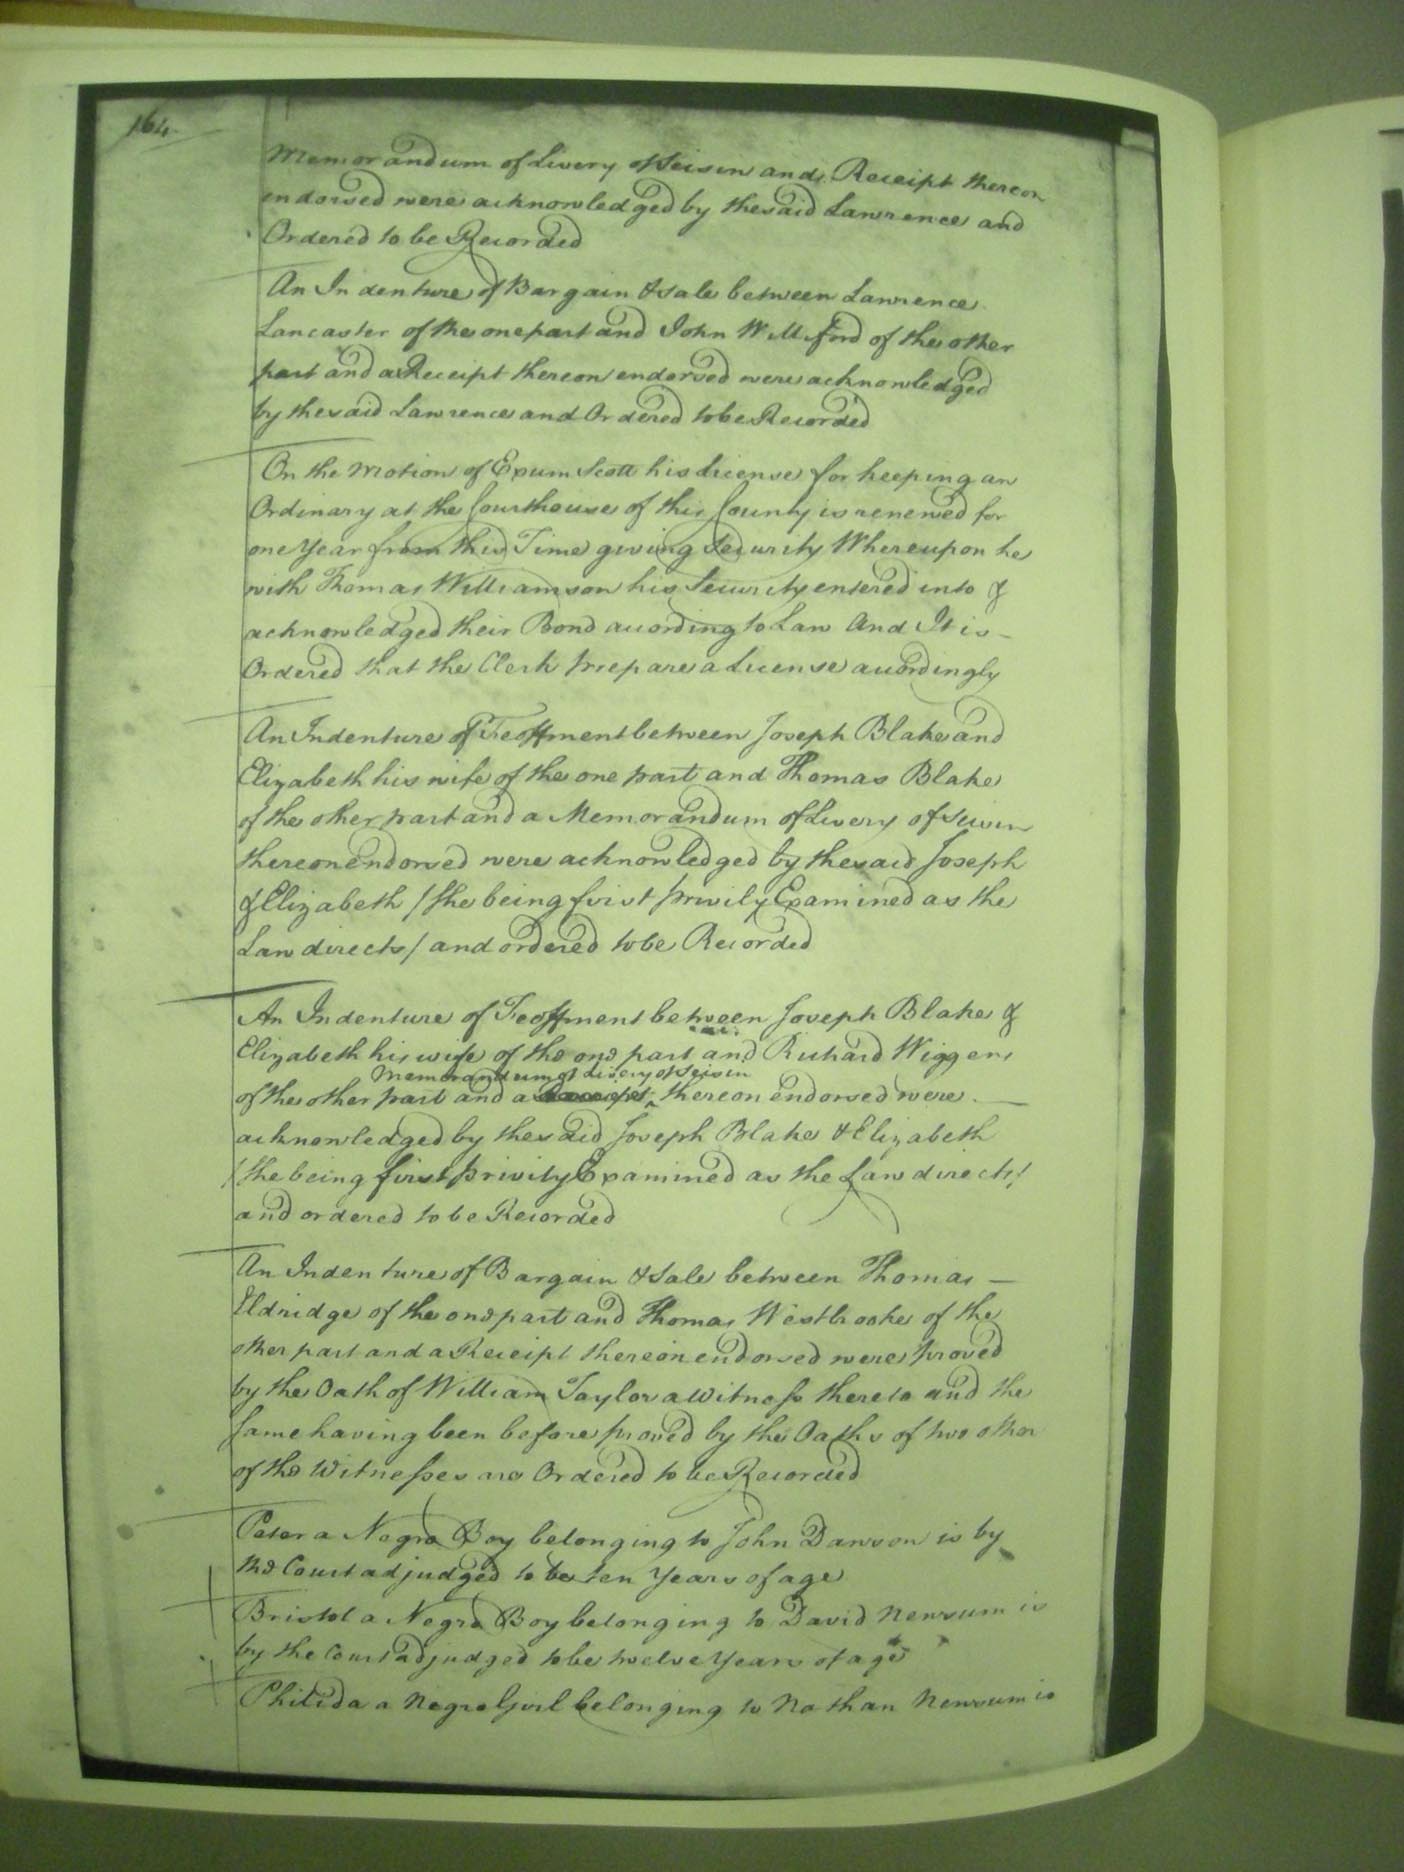 164
Memorandum of Livery of Seisin and Receipt thereon
endorsed were acknowledged by the said Lawrence and
Ordered to be Recorded
An Indenture of Bargain & Sale between Lawrence
Lancaster of the one part and John Williford of the other
part and a Receipt thereon endorsed were acknowledged
by the said Lawrence and Ordered to be Recorded
On the Motion of Exum Scott his License for keeping an
Ordinary at the Courthouse of this County is renewed for
one Year from this Time giving Security Whereupon he
with Thomas Williamson his Security entered into &
acknowledged their Bond according to Law And It is
Ordered that the Clerk Prepare a License accordingly
An Indenture of Feoffment between Joseph Blake and
Elizabeth his wife of the one part and Thomas Blake
of the other part and a Memorandum of Livery of Seisin
thereon endorsed were acknowledged by the said Joseph
& Elizabeth /She being first privily Examined as the
Law directs/ and ordered to be Recorded
An Indenture of Feoffment between Joseph Blake &
Elizabeth his wife of the one part and Richard Wiggens
Memorandum of Livery of Seisin
of the other part and a thereon endorsed were
acknowledged by the said Joseph Blake & Elizabeth
/She being first privily Examined as the Law directs/
and ordered to be Recorded
An Indenture of Bargain & Sale between Thomas
Eldridge of the one part and Thomas Westbrooke of the
other part and a Receipt thereon endorsed were proved
by the Oath of William Taylor a Witness thereto and the
Same having been before proved by the Oaths of two other
of the Witnesses are Ordered to be Recorded
Peter a Negro Boy belonging to John Dawson is by
the Court adjudged to be ten Years of age
Bristol a Negro Boy belonging to David Newsum is
by the Court adjudged to be twelve Years of age
Philida a Negro Girl belonging to Nathan Newsum is